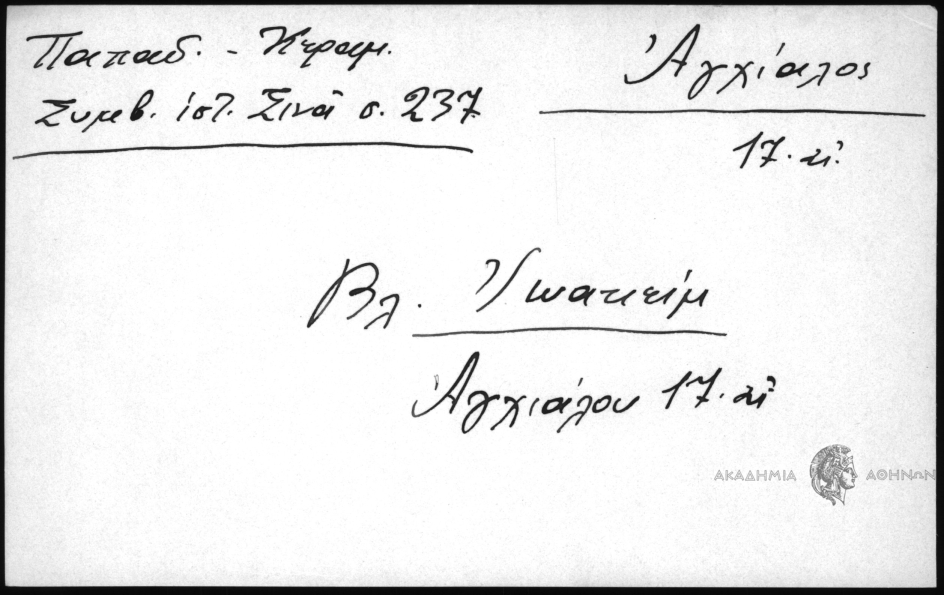 Παπαδ. - Κεραμ.
Συμβ. ἱστ. Σινᾶ σ. 237
Ἀγχίαλος
17. αἰ.
Βλ. Ἰωακεὶμ
Ἀγχιάλου 17. αἰ.
ΑΚΑΔΗΜΙΑ ΑΘΗΝΩΝ